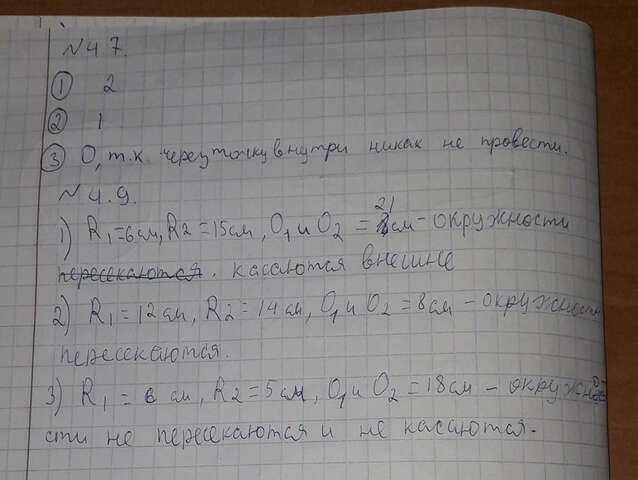 № 4 7.
① 2
② 1
③ 0, т.к. через точку внутри никак не провести.
№ 4.9.
1) R₁=6см, R₂=15см, O₁ и O₂ = 21см - окружности
пересекаются. касаются внешне
2) R₁=12см, R₂=14см, O₁ и O₂=8см - окружности
пересекаются.
3) R₁ = 6 см, R₂=5см, O₁ и O₂=18см - окружно
сти не пересекаются и не касаются.